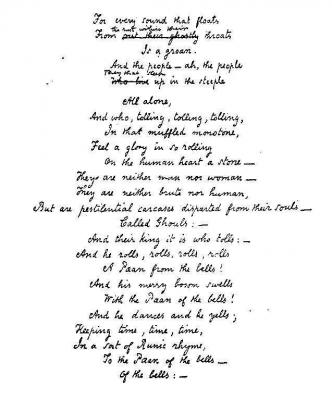 For every sound that floats
the rust within their
From out their ghostly throats
Is a groan.
And the people — ah, the people
They that sleep
Who live up in the steeple
All alone,
And who, tolling, tolling, tolling,
In that muffled monotone,
Feel a glory in so rolling
On the human heart a stone —
They are neither man nor woman —
They are neither brute nor human,
But are pestilential carcases disparted from their souls —
Called Ghouls: —
And their king it is who tolls: —
And he rolls, rolls, rolls, rolls
A Paean from the bells!
And his merry bosom swells
With the Paean of the bells!
And he dances and he yells;
Keeping time, time, time,
In a sort of Runic rhyme,
To the Paean of the bells —
Of the bells: —